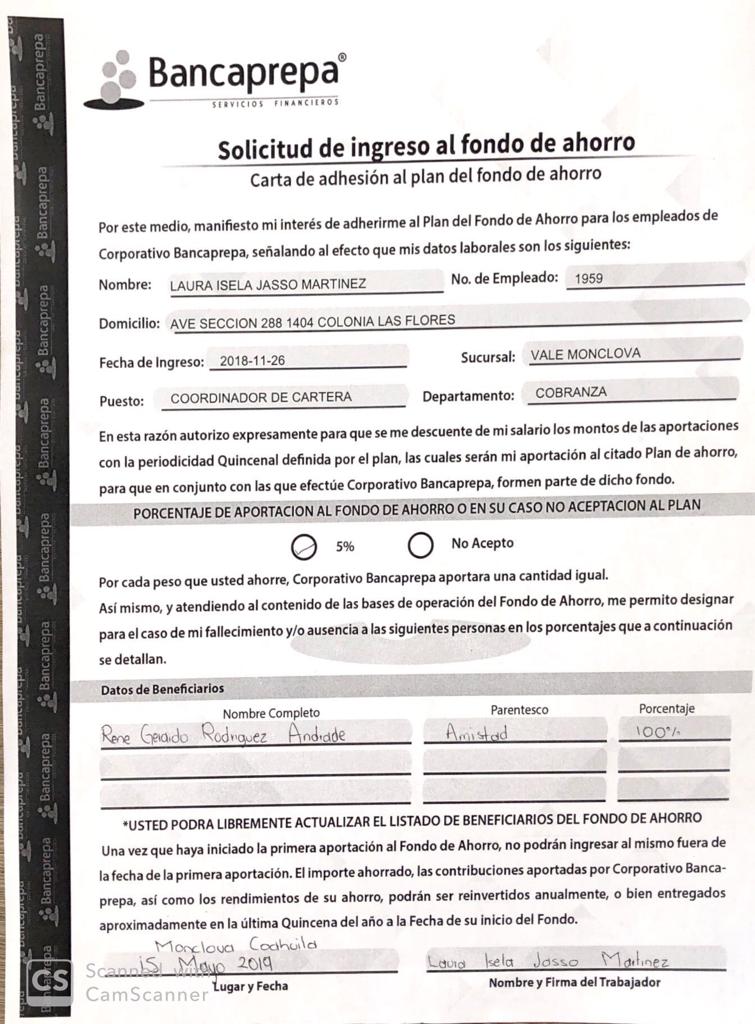 Bancaprepa®
SERVICIOS FINANCIEROS
Solicitud de ingreso al fondo de ahorro
Carta de adhesión al plan del fondo de ahorro
Por este medio, manifiesto mi interés de adherirme al Plan del Fondo de Ahorro para los empleados de
Corporativo Bancaprepa, señalando al efecto que mis datos laborales son los siguientes:
Nombre: LAURA ISELA JASSO MARTINEZ No. de Empleado: 1959
Domicilio: AVE SECCION 288 1404 COLONIA LAS FLORES
Fecha de Ingreso: 2018-11-26 Sucursal: VALE MONCLOVA
Puesto: COORDINADOR DE CARTERA Departamento: COBRANZA
En esta razón autorizo expresamente para que se me descuente de mi salario los montos de las aportaciones
con la periodicidad Quincenal definida por el plan, las cuales serán mi aportación al citado Plan de ahorro,
para que en conjunto con las que efectúe Corporativo Bancaprepa, formen parte de dicho fondo.
PORCENTAJE DE APORTACION AL FONDO DE AHORRO O EN SU CASO NO ACEPTACION AL PLAN
5% No Acepto
Por cada peso que usted ahorre, Corporativo Bancaprepa aportara una cantidad igual.
Así mismo, y atendiendo al contenido de las bases de operación del Fondo de Ahorro, me permito designar
para el caso de mi fallecimiento y/o ausencia a las siguientes personas en los porcentajes que a continuación
se detallan.
Datos de Beneficiarios
Nombre Completo Parentesco Porcentaje
Rene Gerardo Rodriguez Andrade Amistad 100%
*USTED PODRA LIBREMENTE ACTUALIZAR EL LISTADO DE BENEFICIARIOS DEL FONDO DE AHORRO
Una vez que haya iniciado la primera aportación al Fondo de Ahorro, no podrán ingresar al mismo fuera de
la fecha de la primera aportación. El importe ahorrado, las contribuciones aportadas por Corporativo Banca-
prepa, así como los rendimientos de su ahorro, podrán ser reinvertidos anualmente, o bien entregados
aproximadamente en la última Quincena del año a la Fecha de su inicio del Fondo.
Monclova Coahuila
15/ Mayo 2019 Laura Isela Jasso Martinez
Lugar y Fecha Nombre y Firma del Trabajador
CS Scanned with
CamScanner